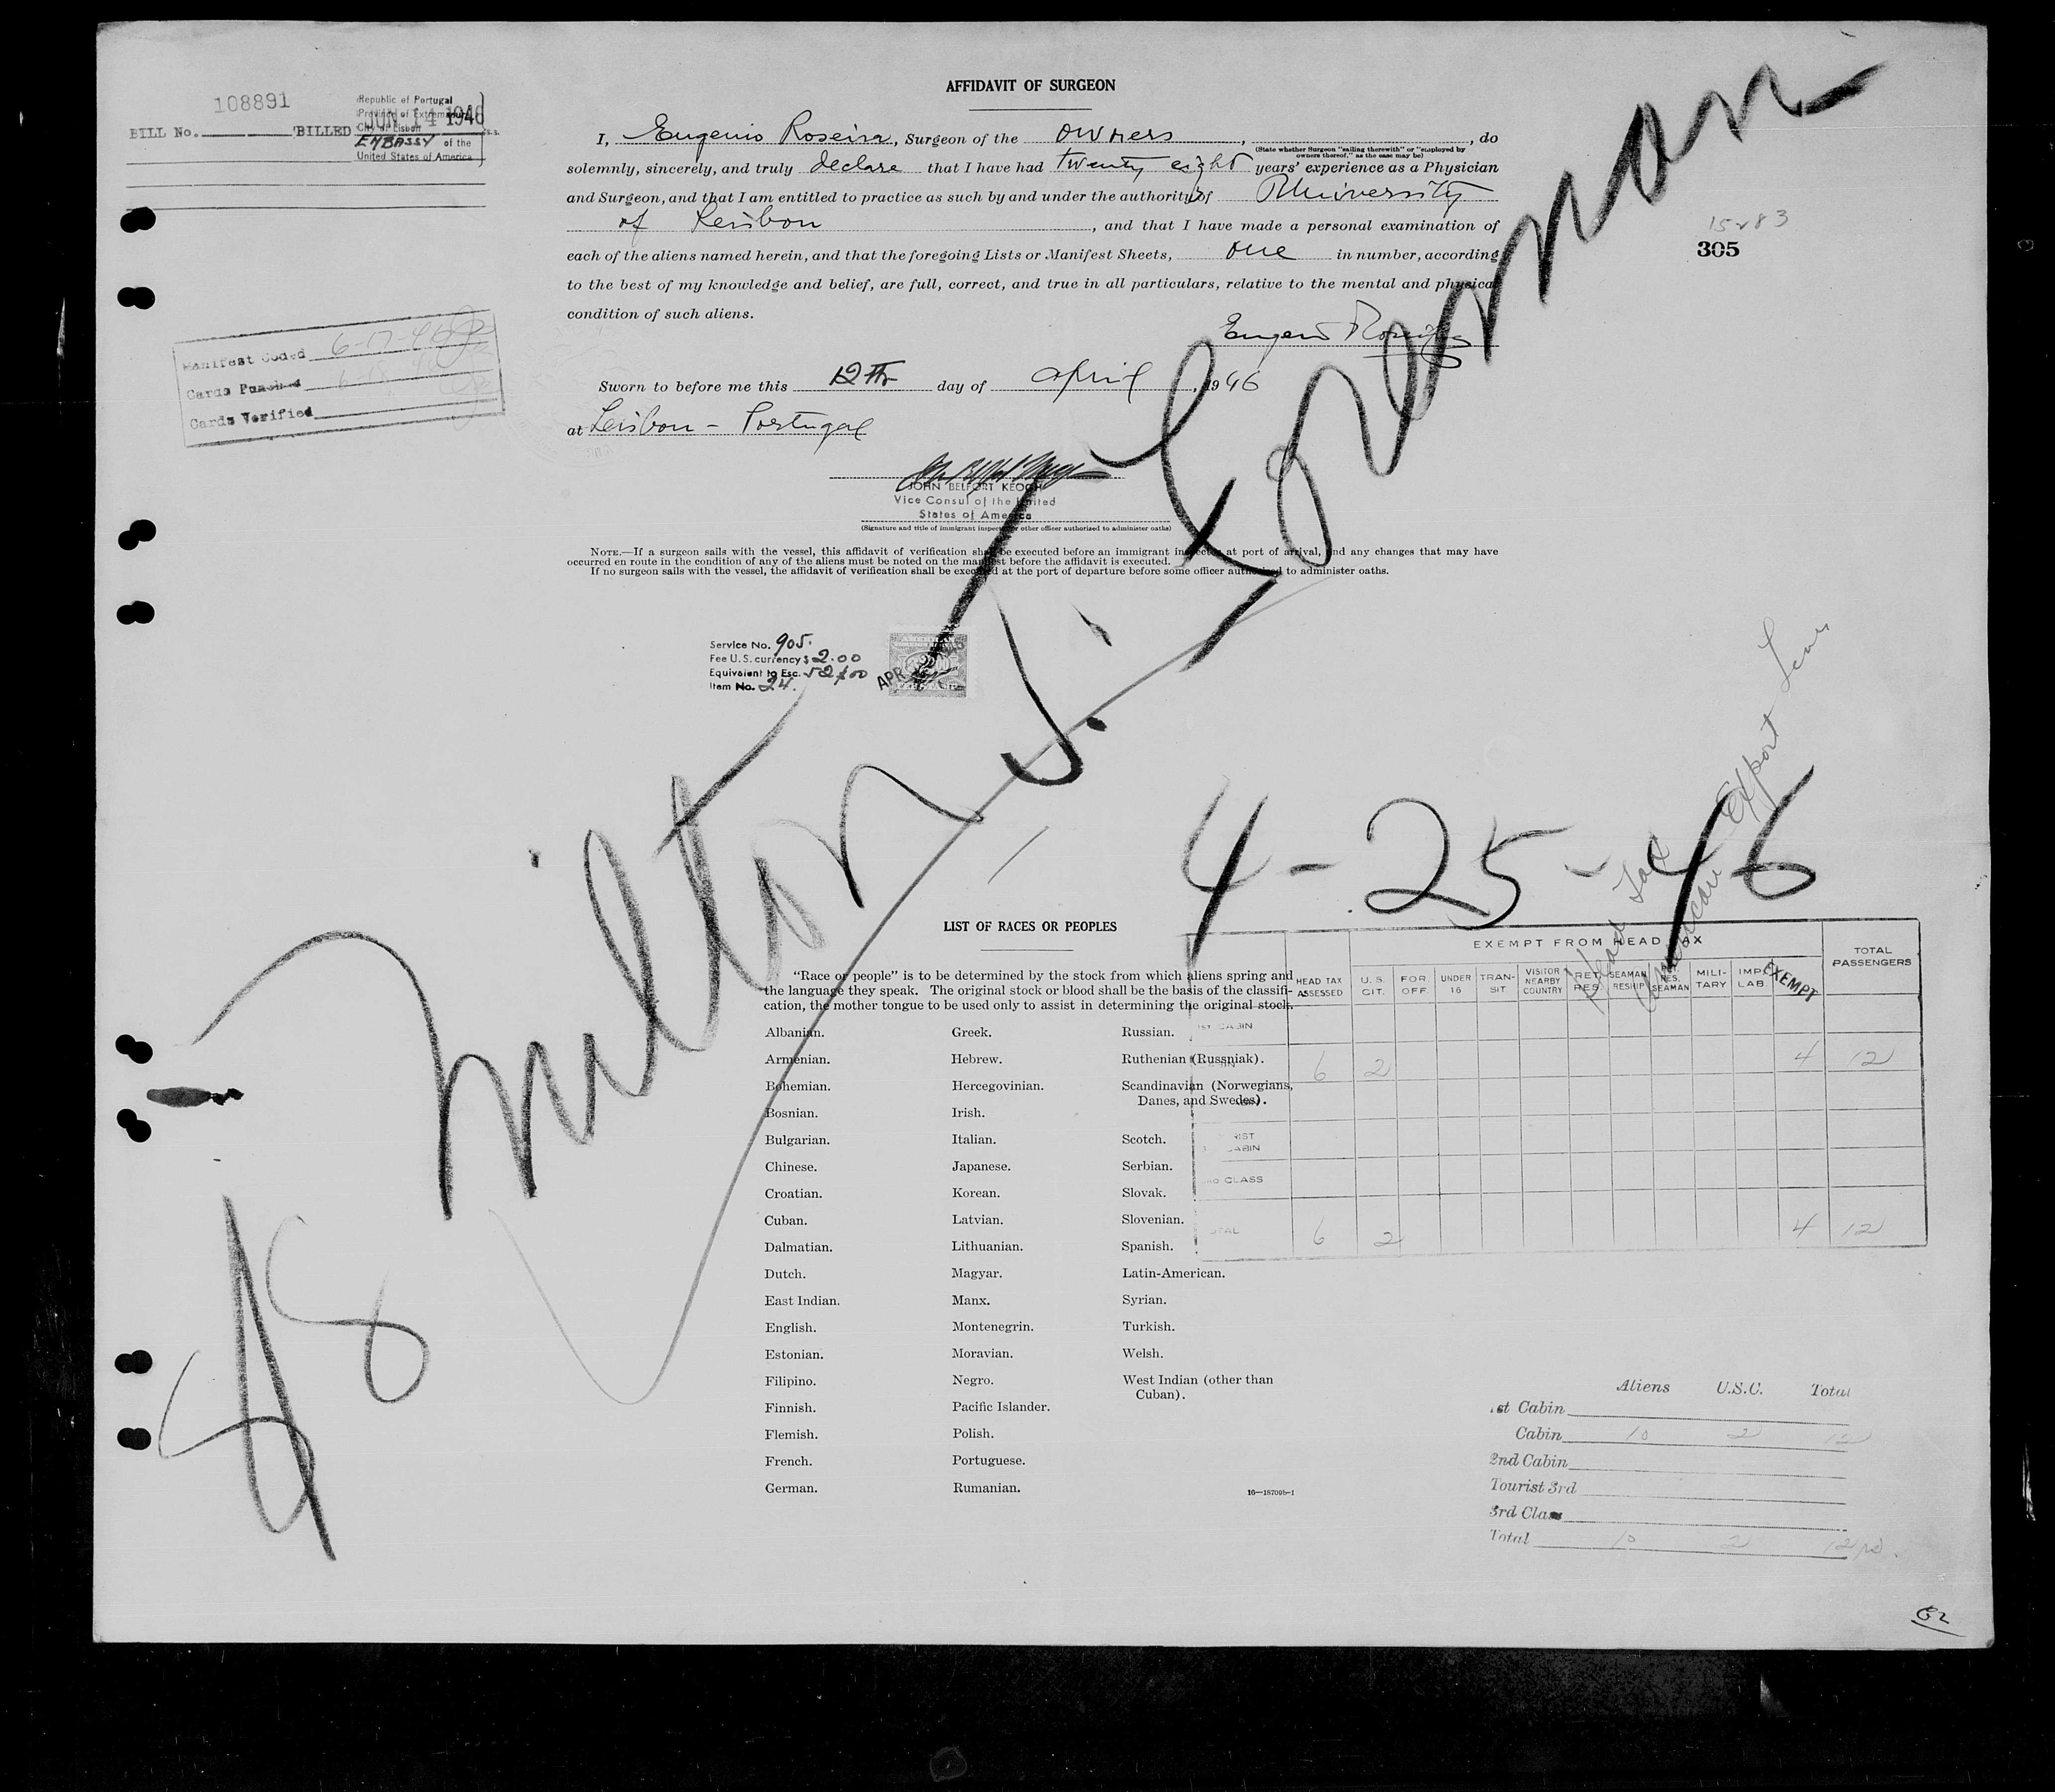 AFFIDAVIT OF SURGEON
108891
BILL No. BILLED JUN 14 1946
Republic of Portugal
Province of Extremadura
City of Lisbon
EMBASSY of the
United States of America
s.s.
I, Eugenio Roseira, Surgeon of the owners, , do
(State whether Surgeon "sailing therewith" or "employed by
owners thereof," as the case may be)
solemnly, sincerely, and truly declare that I have had twenty eight years' experience as a Physician
and Surgeon, and that I am entitled to practice as such by and under the authority of University
of Leisbon, and that I have made a personal examination of
each of the aliens named herein, and that the foregoing Lists or Manifest Sheets, one in number, according
to the best of my knowledge and belief, are full, correct, and true in all particulars, relative to the mental and physical
condition of such aliens.
Eugenio Roseira
15283
305
Manifest Coded 6-17-46
Cards Punched 6-18
Cards Verified
Sworn to before me this 12th day of april, 1946
at Leisbon - Portugal
JOHN BELFORT KEOGH
Vice Consul of the United
States of America
(Signature and title of immigrant inspector or other officer authorized to administer oaths)
NOTE.—If a surgeon sails with the vessel, this affidavit of verification shall be executed before an immigrant inspector at port of arrival, and any changes that may have
occurred en route in the condition of any of the aliens must be noted on the manifest before the affidavit is executed.
If no surgeon sails with the vessel, the affidavit of verification shall be executed at the port of departure before some officer authorized to administer oaths.
Service No. 905.
Fee U.S. currency $ 2.00
Equivalent to Esc. 52$00
Item No. 24.
AMERICAN
$2.00
APR
SS Milton J. Foreman
4-25-46
Head Tax
American Export Lines
LIST OF RACES OR PEOPLES
"Race or people" is to be determined by the stock from which aliens spring and
the language they speak. The original stock or blood shall be the basis of the classifi-
cation, the mother tongue to be used only to assist in determining the original stock.
Albanian.
Armenian.
Bohemian.
Bosnian.
Bulgarian.
Chinese.
Croatian.
Cuban.
Dalmatian.
Dutch.
East Indian.
English.
Estonian.
Filipino.
Finnish.
Flemish.
French.
German.
Greek.
Hebrew.
Hercegovinian.
Irish.
Italian.
Japanese.
Korean.
Latvian.
Lithuanian.
Magyar.
Manx.
Montenegrin.
Moravian.
Negro.
Pacific Islander.
Polish.
Portuguese.
Rumanian.
Russian.
Ruthenian (Russniak).
Scandinavian (Norwegians,
Danes, and Swedes).
Scotch.
Serbian.
Slovak.
Slovenian.
Spanish.
Latin-American.
Syrian.
Turkish.
Welsh.
West Indian (other than
Cuban).
16—18709b-1
EXEMPT FROM HEAD TAX
HEAD TAX ASSESSED U.S. CIT. FOR OFF. UNDER 16 TRANSIT VISITOR NEARBY COUNTRY RET. RES. SEAMAN RESHIP RET. RES. SEAMAN MILITARY IMP. LAB. EXEMPT TOTAL PASSENGERS
1ST CABIN
CABIN 6 2 4 12
3RD CLASS
TOTAL 6 2 4 12
Aliens U.S.C. Total
1st Cabin
Cabin 10 2 12
2nd Cabin
Tourist 3rd
3rd Class
Total 10 2 12